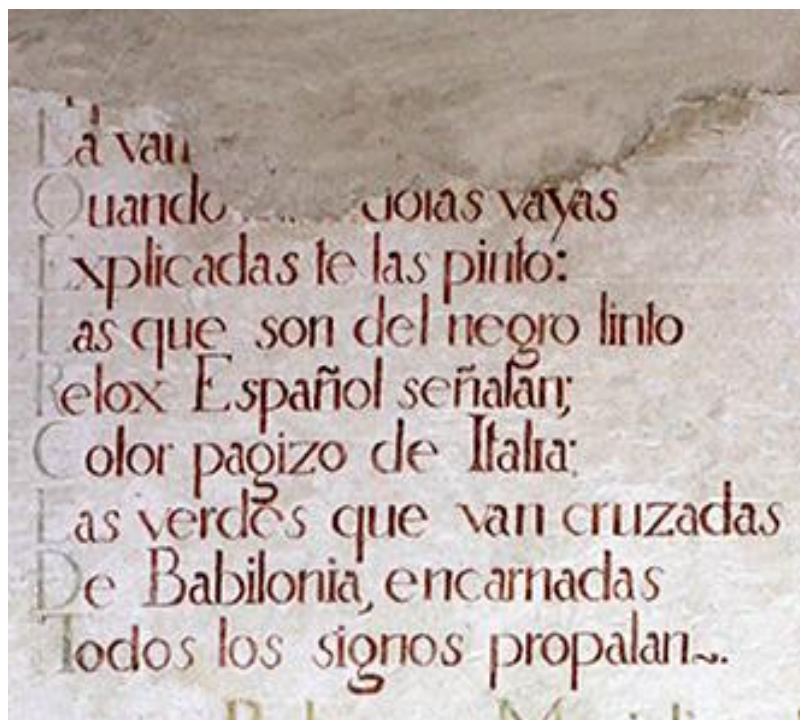 van
Quando vayas
Explicadas te las pinto:
Las que son del negro tinto
Relox Español señalan;
Color pagizo de Italia:
Las verdes que van cruzadas
De Babilonia, encarnadas
Todos los signos propalan~.